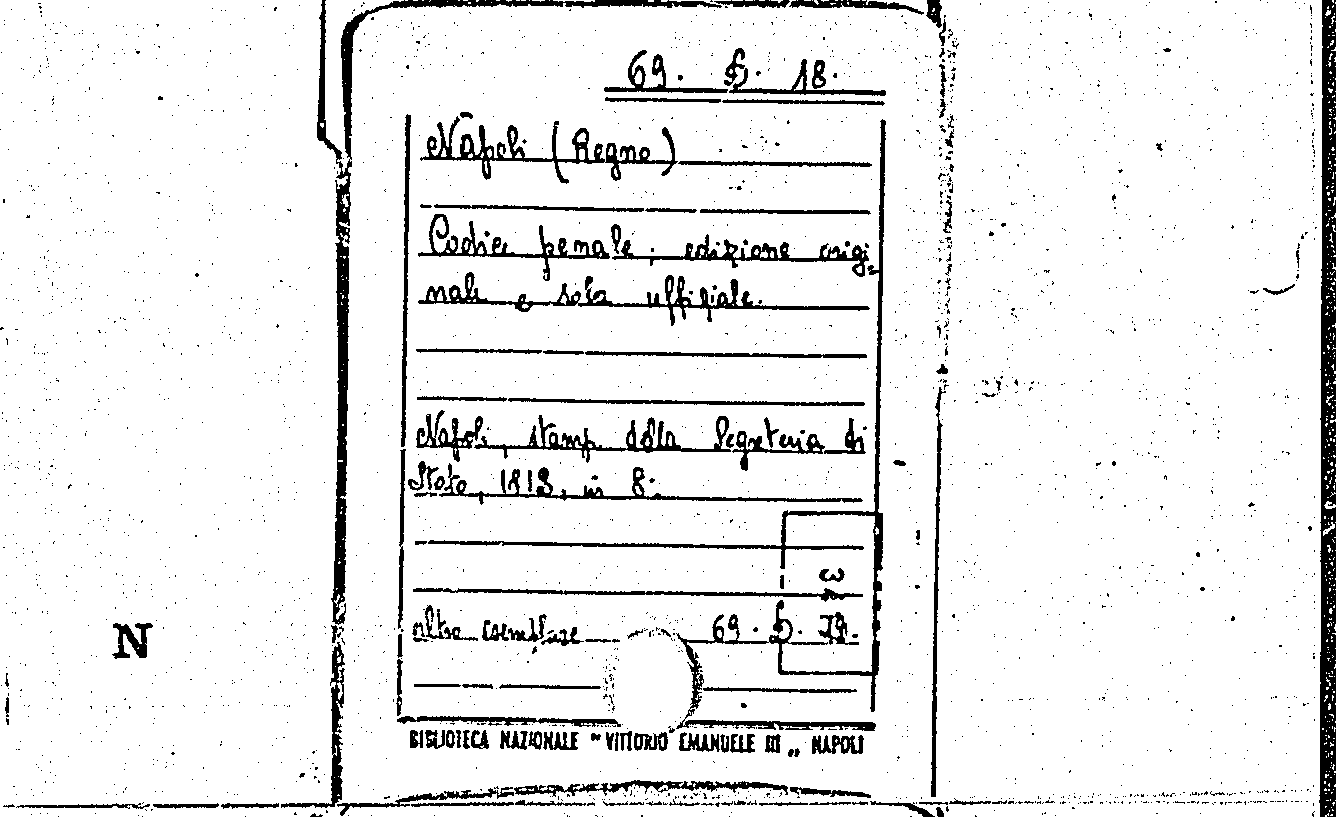 69. D. 18.
Napoli (Regno)
Codice penale; edizione origi=
nale e sola uffiziale.
Napoli, stamp della Segreteria di
Stato, 1813, in 8.
altro esemplare 69. D. 79.
N
BIBLIOTECA NAZIONALE "VITTORIO EMANUELE III„ NAPOLI